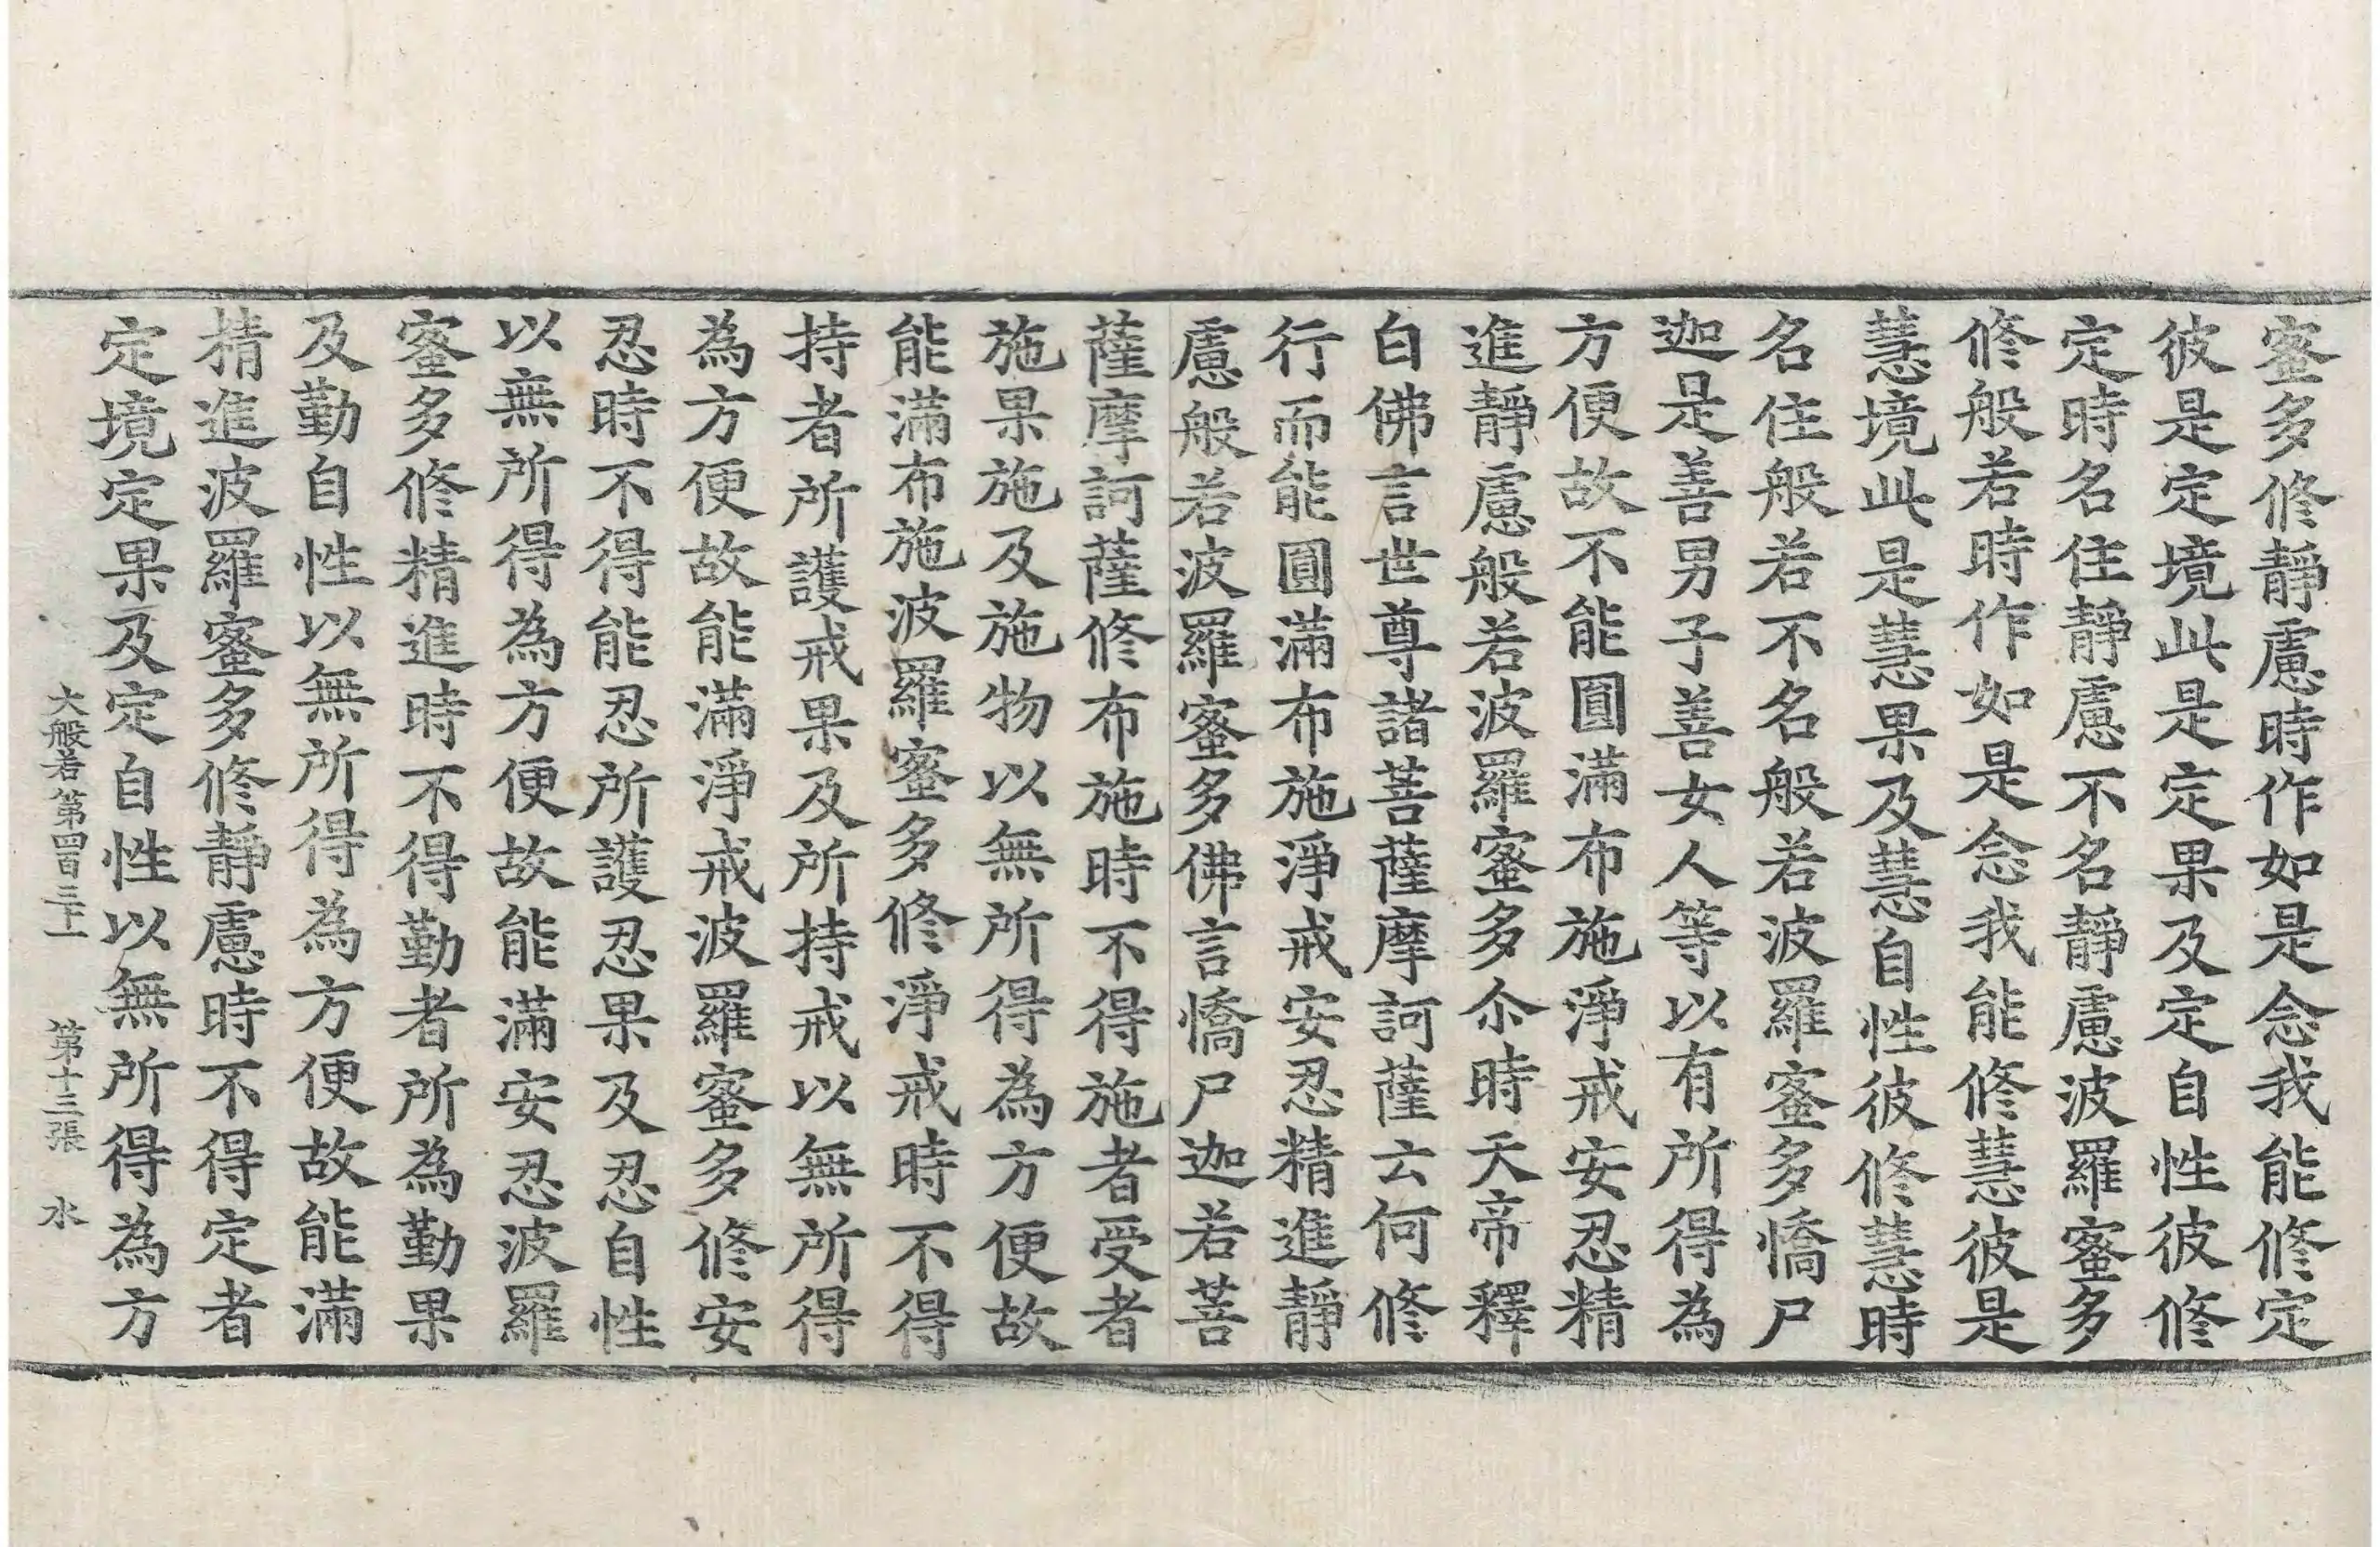 蜜多修靜慮時作如是念我能修定
彼是定境此是定果及定自性彼修
定時名住靜慮不名靜慮波羅蜜多
修般若時作如是念我能修慧彼是
慧境此是慧果及慧自性彼修慧時
名住般若不名般若波羅蜜多憍尸
迦是善男子善女人等以有所得為
方便故不能圓滿布施淨戒安忍精
進靜慮般若波羅蜜多尒時天帝釋
白佛言世尊諸菩薩摩訶薩云何修
行而能圓滿布施淨戒安忍精進靜
慮般若波羅蜜多佛言憍尸迦若菩
薩摩訶薩修布施時不得施者受者
施果施及施物以無所得為方便故
能滿布施波羅蜜多修淨戒時不得
持者所護戒果及所持戒以無所得
為方便故能滿淨戒波羅蜜多修安
忍時不得能忍所護忍果及忍自性
以無所得為方便故能滿安忍波羅
蜜多修精進時不得勤者所為勤果
及勤自性以無所得為方便故能滿
精進波羅蜜多修靜慮時不得定者
定境定果及定自性以無所得為方
大般若第四百三十一 第十三張 水